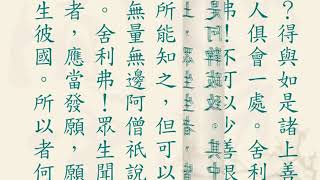 ？得與如是諸上善
人俱會一處。舍利
弗！不可以少善根
其中
所能知之，但可以
無量無邊阿僧祇說
。舍利弗！眾生聞
者，應當發願，願
生彼國。所以者何